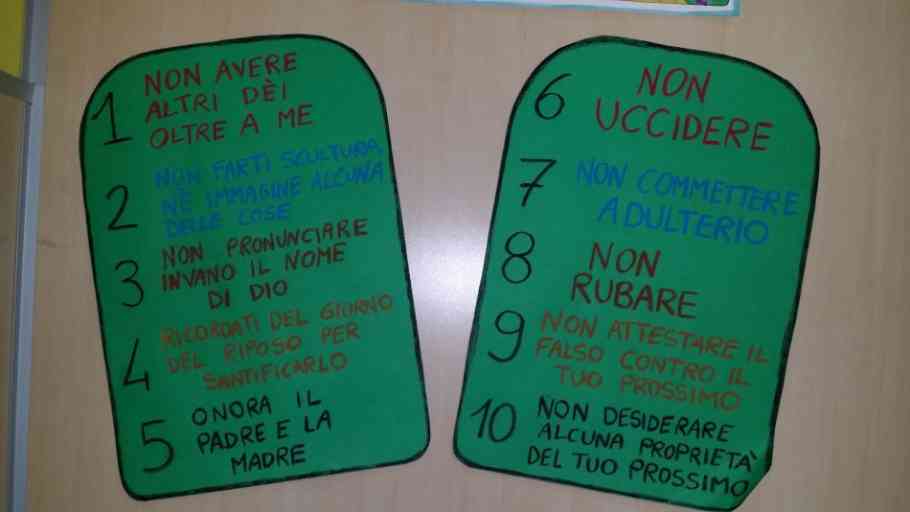 1 NON AVERE
ALTRI DÈI
OLTRE A ME
2 NON FARTI SCULTURA,
NÈ IMMAGINE ALCUNA
DELLE COSE
3 NON PRONUNCIARE
INVANO IL NOME
DI DIO
4 RICORDATI DEL GIORNO
DEL RIPOSO PER
SANTIFICARLO
5 ONORA IL
PADRE E LA
MADRE
6 NON
UCCIDERE
7 NON COMMETTERE
ADULTERIO
8 NON
RUBARE
9 NON ATTESTARE IL
FALSO CONTRO IL
TUO PROSSIMO
10 NON DESIDERARE
ALCUNA PROPRIETÀ
DEL TUO PROSSIMO